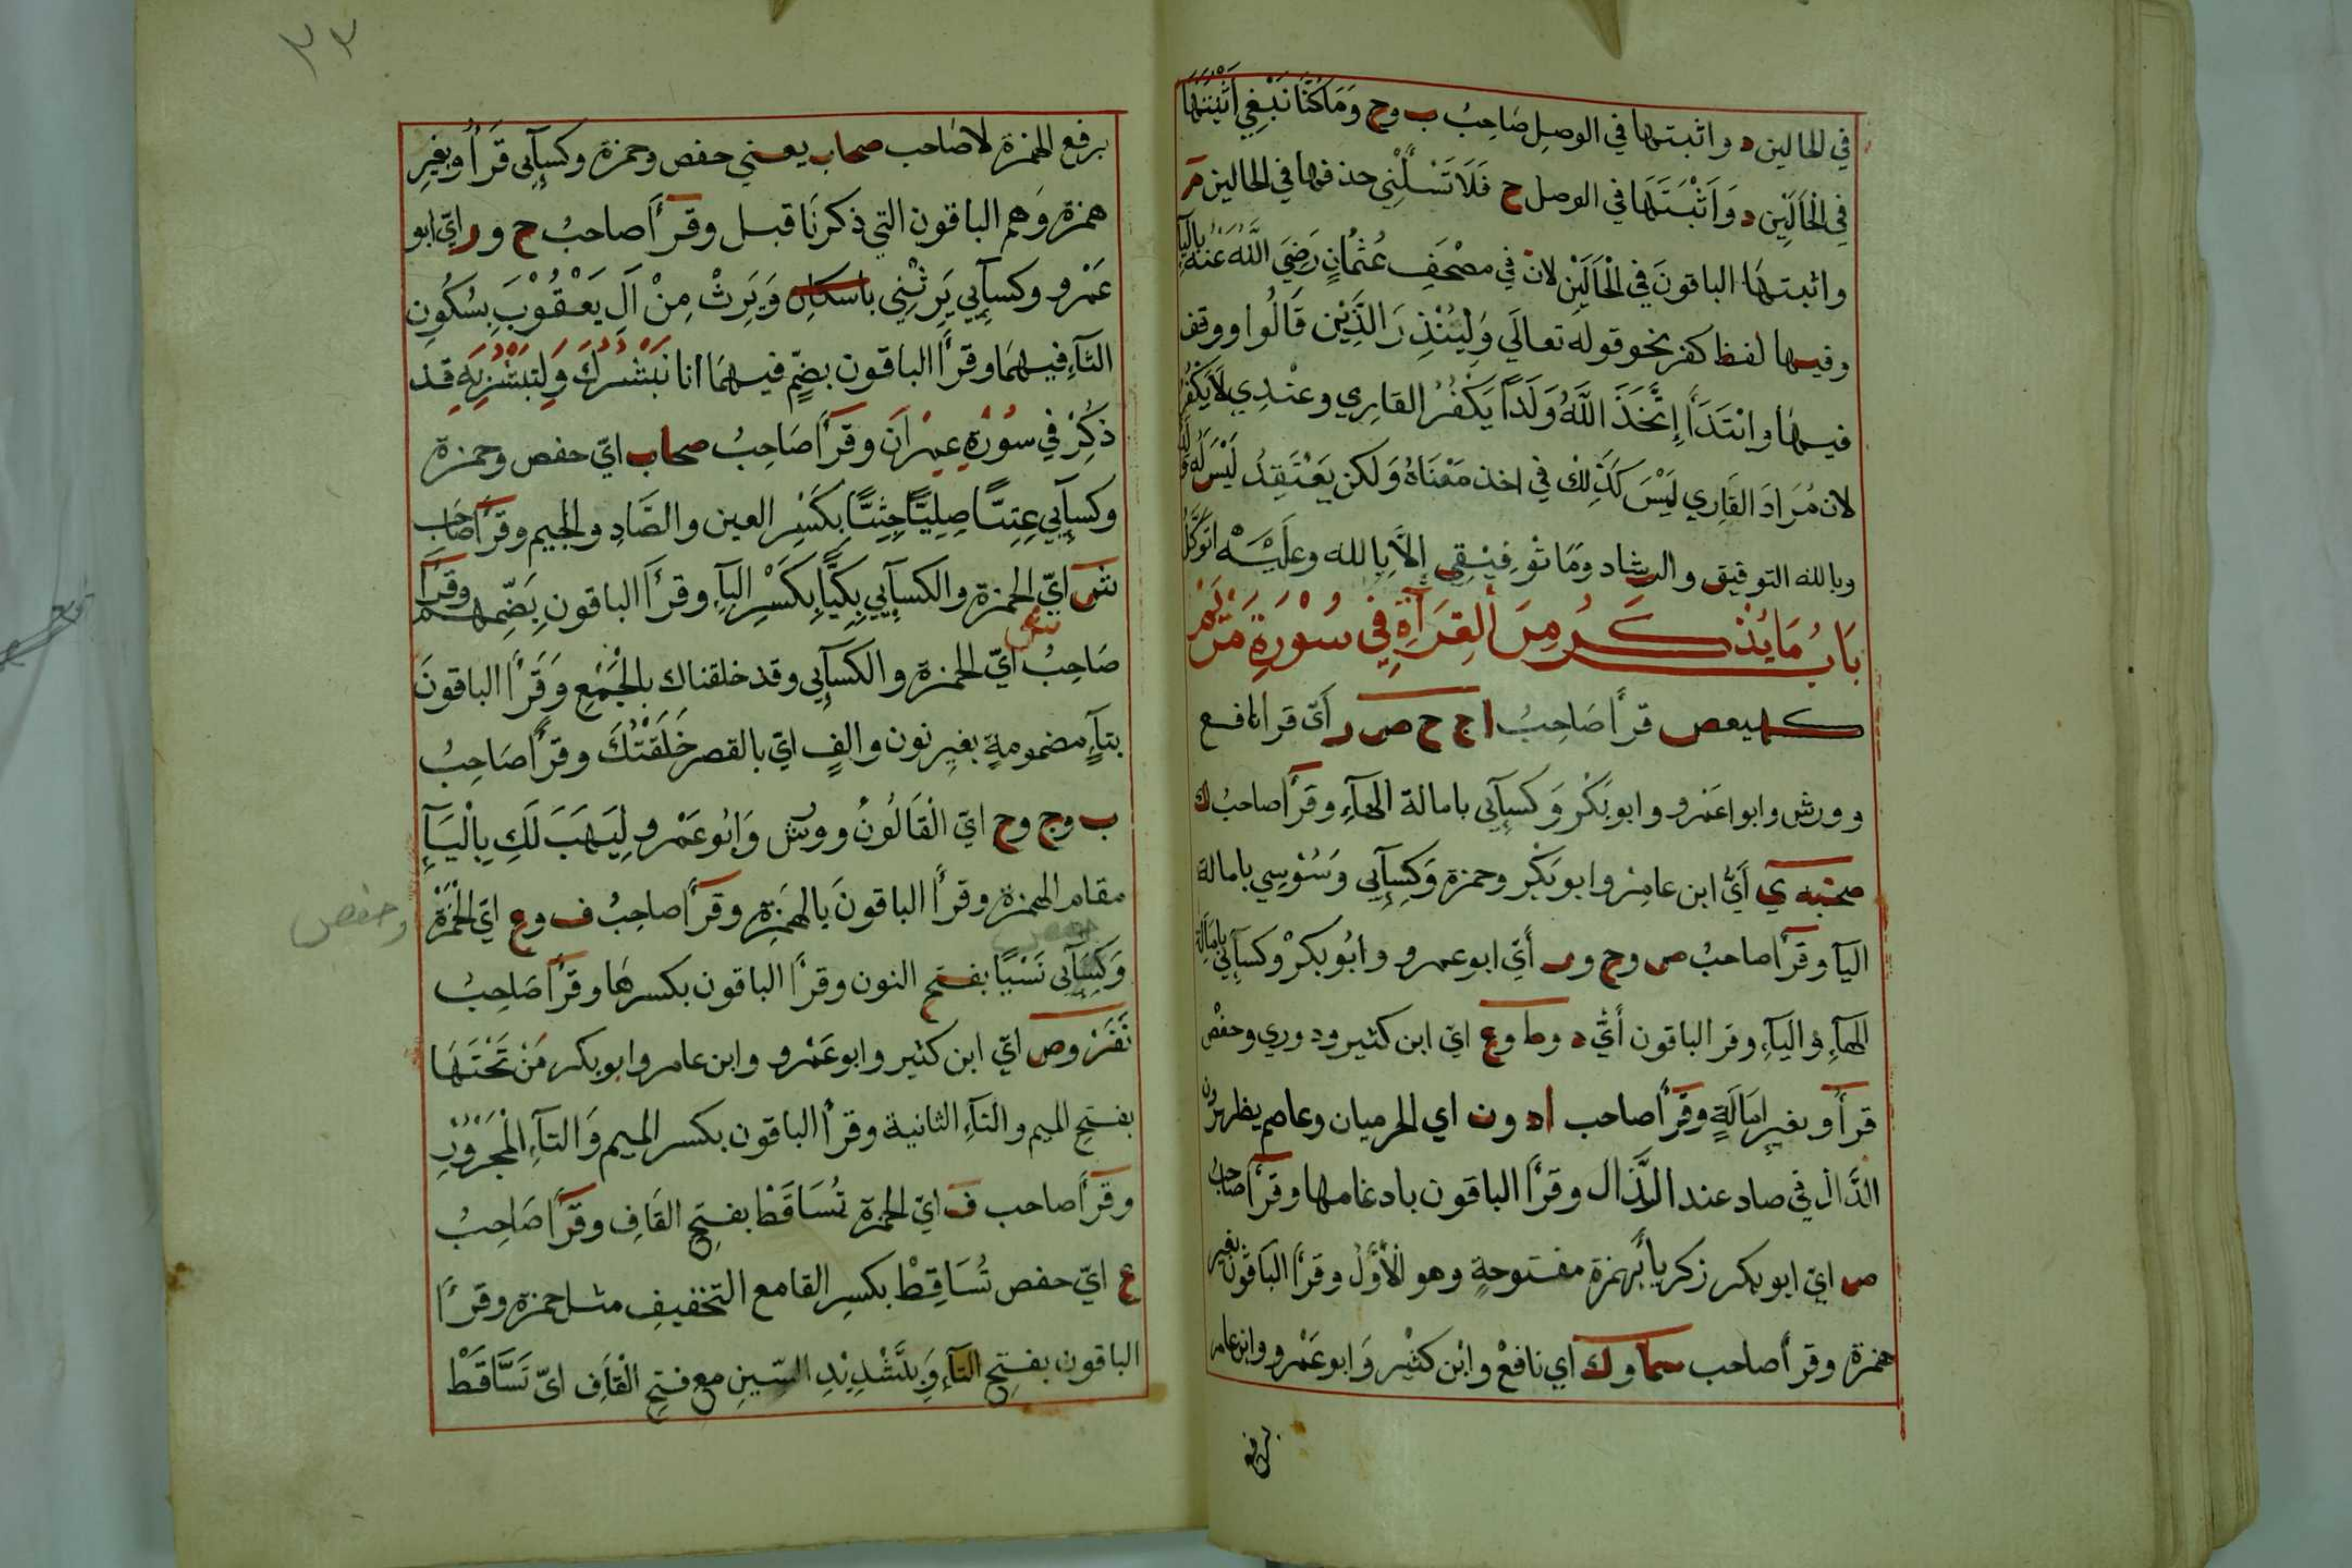 في الحالين د واثبتها في الوصل صَاحِبُ ب وح وَمَا كُنَّا نَبْغِي اَثْبَتَهَا
في الْحَالَيْنِ د وَاَثْبَتَهَا في الوصل ح فَلَا تَسْـَٔلْنِي حذفها في الحالين م
واثبتها الباقونَ في الْحَالَيْنِ لان في مصْحَفِ عُثْمَانٍ رَضِيَ اللَّهُ عَنْهُ بالياء
وفيها لفظ كفر نحو قوله تعالَي وَلِيُنْذِرَ الذَّيْنَ قَالُوا ووقف
فيها وابْتَدَأَ إِتَّخَذَ اللَّهُ وَلَدًا يَكْفُرُ القَارِي وعنْدِي لَا يَكْفُرُ
لان مُرَادَ القَارِي لَيْسَ كَذٰلِكَ في اخذ مَعْنَاهُ وَلكن يَعْتَقِدُ لَيْسَ لَهُ وَلَدٌ
وبالله التوفيق والرشاد وَمَا تَوْفِيْقِي إِلَّا بِالله وعلَيْهِ اتَوَكَّلُ
بَابُ مَا يُذْكَرُ مِنَ الْقِرَآةِ فِي سُوْرَةِ مَرْيَمَ
كهيعص قرأ صَاحِبُ ا ج ح ص ر أَيّ قرا نافع
وورش وابوا عَمْرو وابو بَكْر وَكسآئي بامالة الهآءِ وقرأ صاحبُ ك
صحبه ي أَيُّ ابن عامِرْ وابو بَكْر وحمزة وَكِسآئي وَسُوْسِي بامالة
اليآ وقرأ صاحبُ ص وح ور أَيّ ابو عمرو وابُو بكرْ وكسآئي بامَالة
الهآءِ واليآءِ وقر الباقون أَيُّ د وط وع ايّ ابن كثير ودوري وحفْص
قرأ وبغيرِ اِمَالَةٍ وقرأ صاحب ا د ون اي الحرميان وعاصم يظهرون
الدَّال في صاد عند الذَّال وقرأ الباقون بادغامها وقرأ صَاحبُ
ص ايّ ابو بكر زكريا بَهمزة مفتوحةٍ وهو الْأَوَّلُ وقرأ البَاقُون بغير
همزة وقرأ صاحب سما وك اي نافعْ وابْن كثيْر وَابو عَمْرو وابن عامر
برفع
٣٣
برفع الهمزة لا صَاحب صحاب يعني حفص وحمزة وكسآئى قَرَأُ وبغيرِ
همزة وَهم الباقون التي ذكرنَا قبل وقرأَ صَاحبُ ح ور ايّ ابو
عَمْرو وكسآئِي يَرِثْنِي باسكان وَيَرِثْ مِنْ آلِ يَعْقُوْبَ بِسُكُونِ
الثآءِ فِيهِمَا وقرأَ الباقون بضّمٍ فيهِمَا انا نُبَشِّرُكَ وَلِتُبَشِّرَ بِهِ قد
ذُكِرْ في سوُرْةِ عِمْرَانَ وقرأ صَاحِبُ صحاب ايّ حفص وحمزة
وكسآئِي عِتِيًّا صِلِيًّا جِثِيًّا بِكَسْرِ العين والصَّادِ والجيم وقرأ صاحب
ش ايّ الحمزة والكسآئِي بِكِيًّا بِكَسْرِ البآءِ وقرأَ الباقون بِضَمِّهم وقرأ
صَاحِبُ ش ايّ الحمزة والكسآئى وقد خلقناك بِالْجَمْعِ وَقَرأَ الباقونَ
بتآءٍ مضمومةٍ بغيرِ نون والفٍ ايّ بالقصر خَلَقْتُكَ وقرأ صَاحِبُ
ب وج وح ايّ الْقَالُونُ وورش وَابُو عَمْرو لِيَهَبَ لَكِ بِالْيَآءِ
مقام الهمزة وقرأ الباقونَ بالهَمزة وقرأ صاحِبُ ف وع ايّ الْحمزة
وحفص
وَكِسَآئى نَسْيًا بفتح النون وقرأ الباقون بكسرهَا وقرأ صَاحِبُ
نَفَرْ وص ايّ ابن كثير وابو عَمْرو وابن عامر وابو بكر مَنْ تَحْتَهَا
بفتحِ الميم والتآءِ الثانية وقرأ الباقون بكسر الميم وَالتآءِ الْمَجْرُوْرِ
وقرأ صاحب ف ايّ الحمزة تُسَاقَطْ بفتحِ القَافِ وقرأ صَاحِبُ
ع ايّ حفص تُسَاقِطْ بكسرِ القا مع التخفيفِ مثل حمزة وقرأ
الباقون بفتحِ التآءِ وَبتَّشْدِيْدِ السّينِ مع فتحِ الْقَافِ ايّ تَسَّاقَطْ